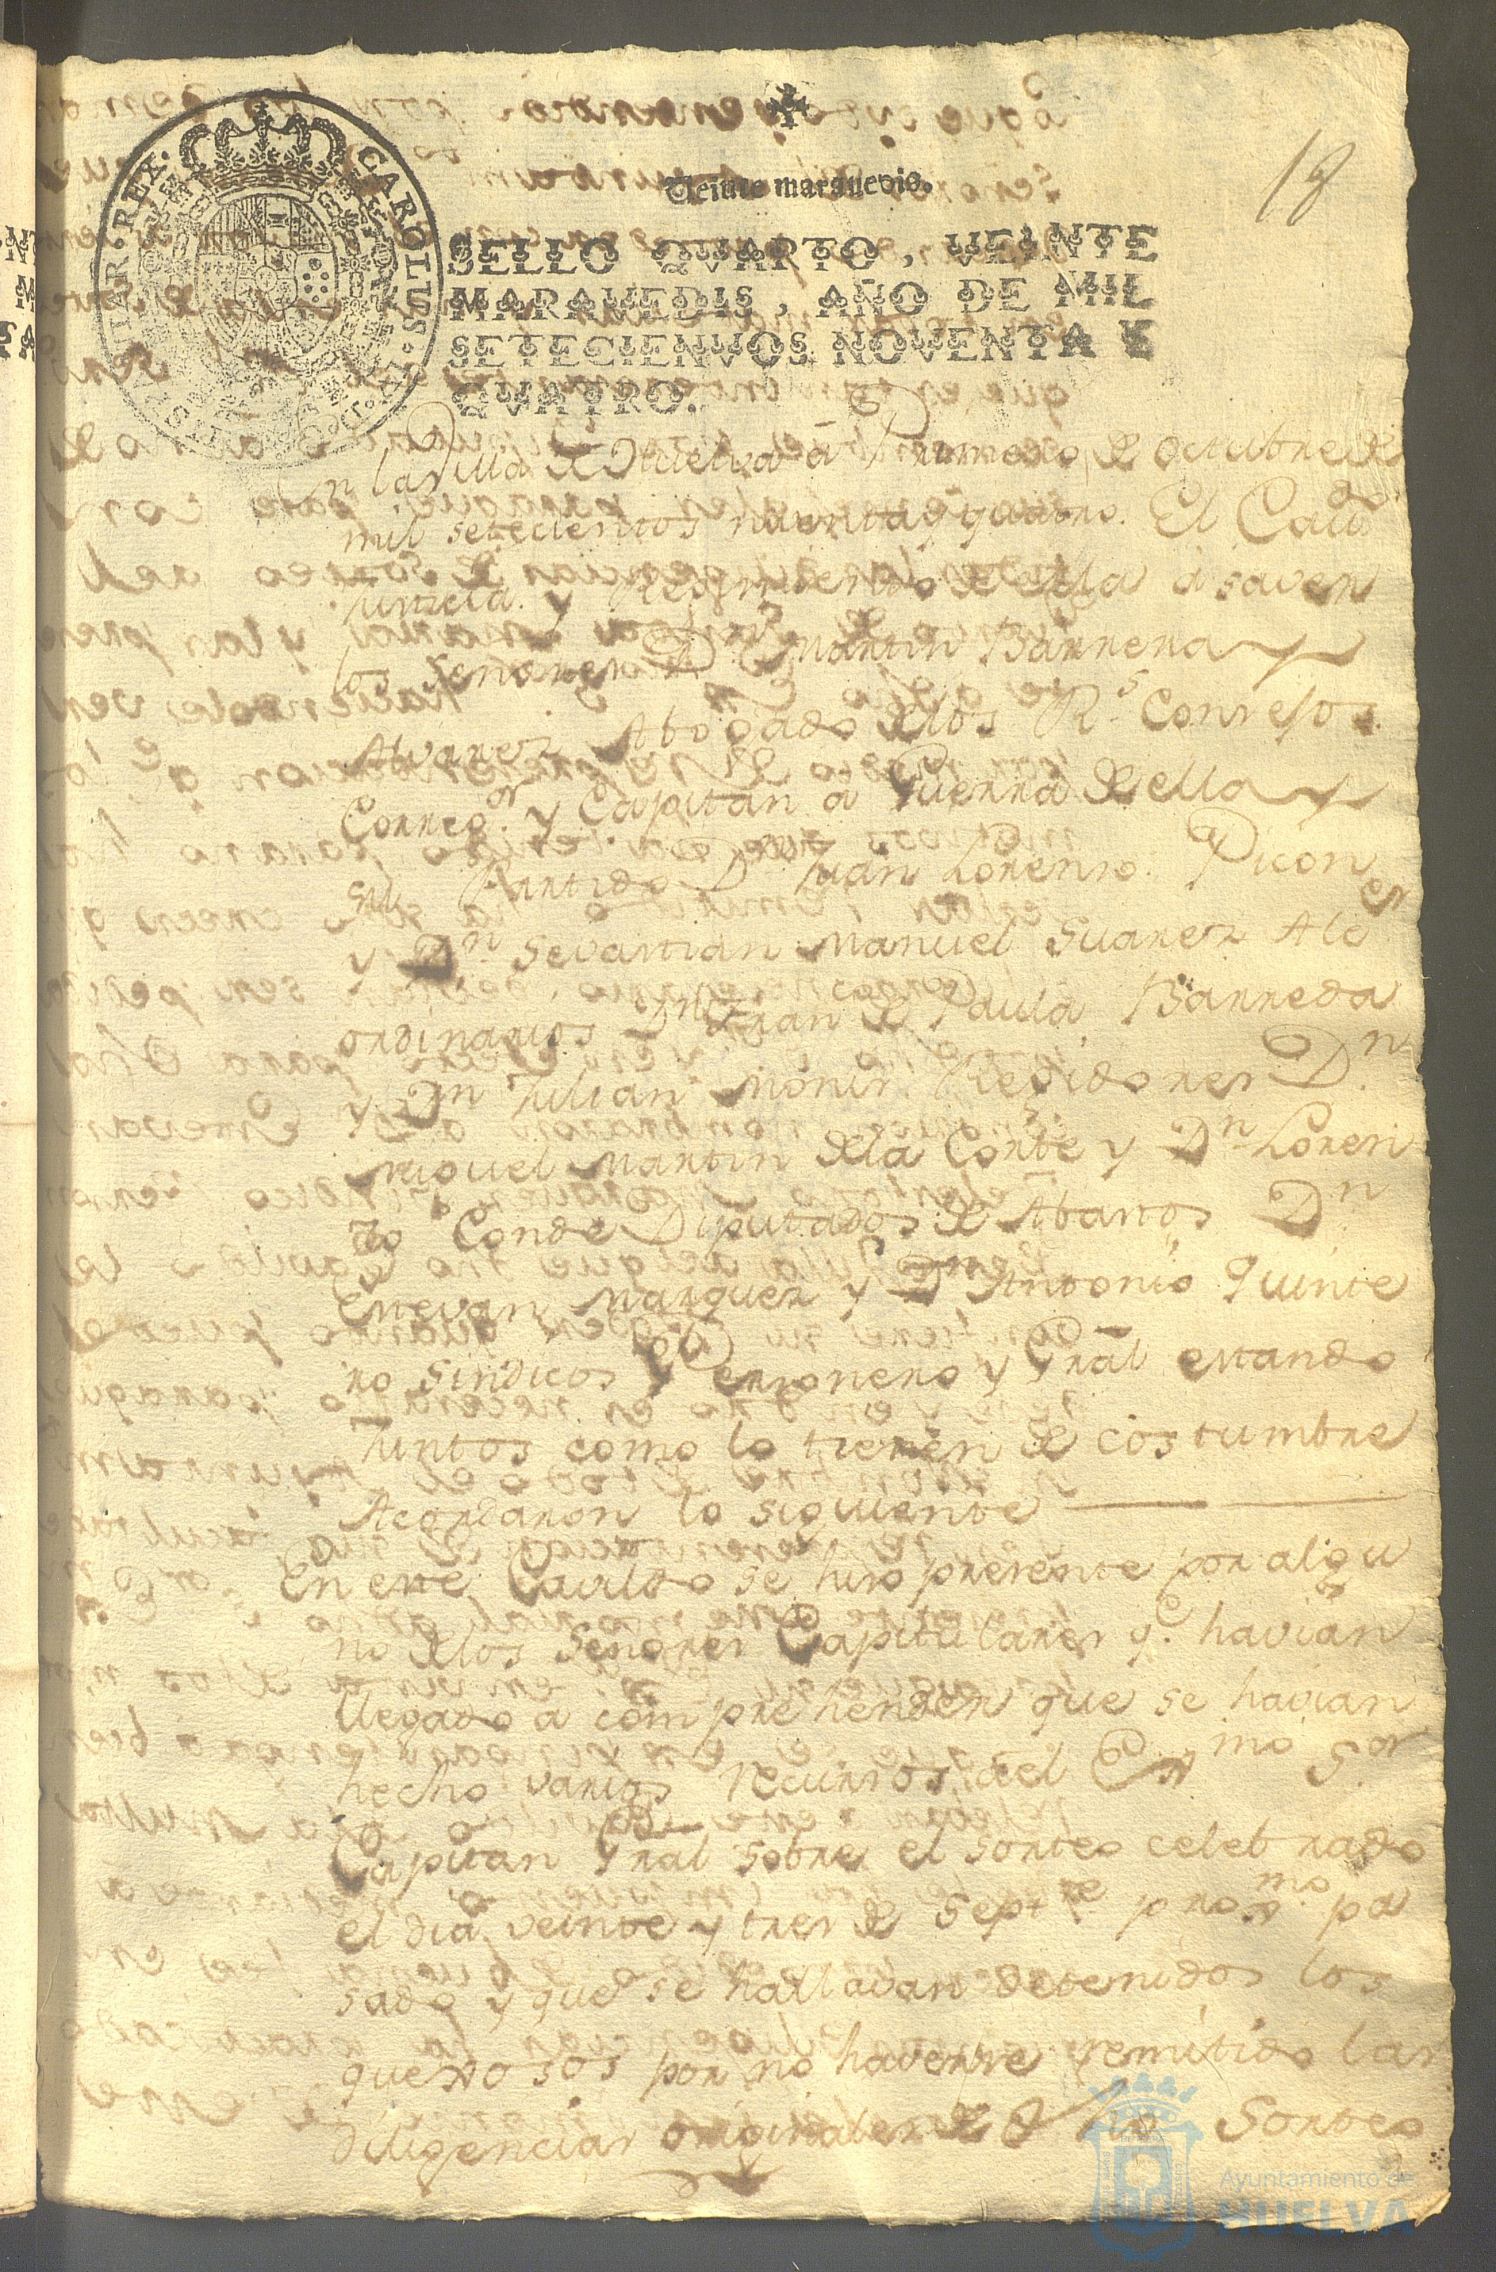 18
Veinte maravedis.
SELLO QVARTO, VEINTE
MARAVEDIS, AÑO DE MIL
SETECIENTOS NOVENTA Y
QVATRO.
CAROLUS REX
En la Villa de Huelva a Primero de Octubre de
mil setecientos noventa y quatro. El Cavdo
Justicia y Regimiento de ella á saver
los Señores Dn Martin Barrera y
Alvarez Abogado de los Rs Consejos
Corregor y Capitan a Guerra de ella y
su Partido Dn Juan Lorenso Picon
y Dn Sevastian Manuel Suarez Alces
ordinarios Dn Fran de Paula Barreda
y Dn Julian Monis Regidores Dn
Miguel Martin de la Corte y Dn Loren
zo Conde Diputados de Abastos Dn
Estevan Marquez y Dn Antonio Quinte
ro Sindicos Personero y Gral estando
Juntos como lo tienen de costumbre
Acordaron lo siguiente
En este Cavildo se hiso presente por algu
no de los Señores Capitulares q. havian
llegado a comprehender que se havian
hecho varios recursos al Exmo Sor
Capitan Gral sobre el sorteo celebrado
el dia veinte y tres de Septe proxmo pa
sado y que se hallavan detenidos los
quexosos por no haverse remitido las
diligencias originales de dho Sorteo
Ayuntamiento de
HUELVA